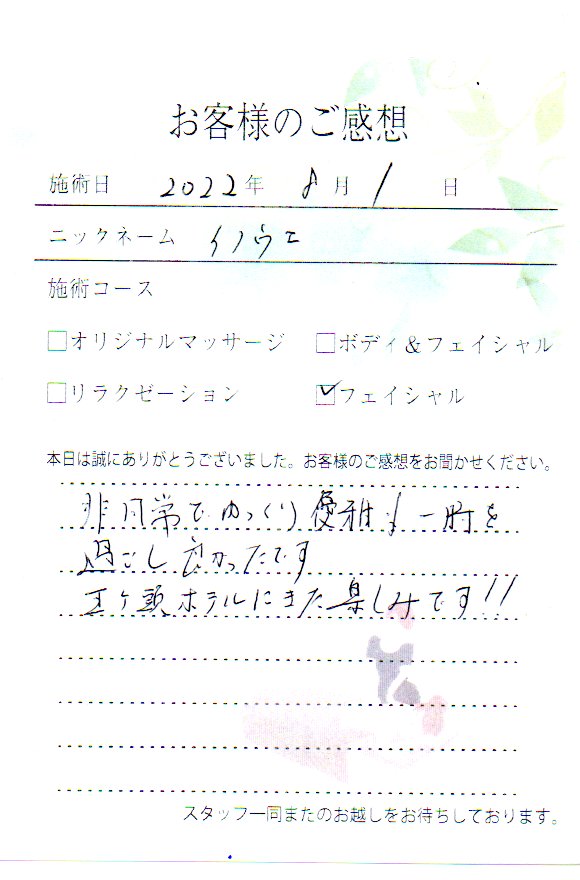 お客様のご感想
施術日 2022年 8月 1 日
ニックネーム イノウエ
施術コース
□オリジナルマッサージ □ボディ&フェイシャル
□リラクゼーション ☑フェイシャル
本日は誠にありがとうございました。お客様のご感想をお聞かせください。
非日常でゆっくり優雅な一時を
過ごし良かったです
王ケ頭ホテルにまた楽しみです!!
スタッフ一同またのお越しをお待ちしております。